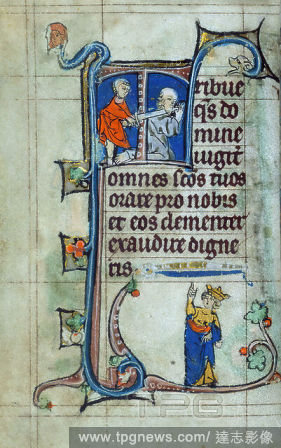 Tribue
qs do
mine
iugit
omnes scos tuos
orare pro nobis
et eos clementer
exaudire digne
ris
TPG
www.tpgnews.com / 達志影像